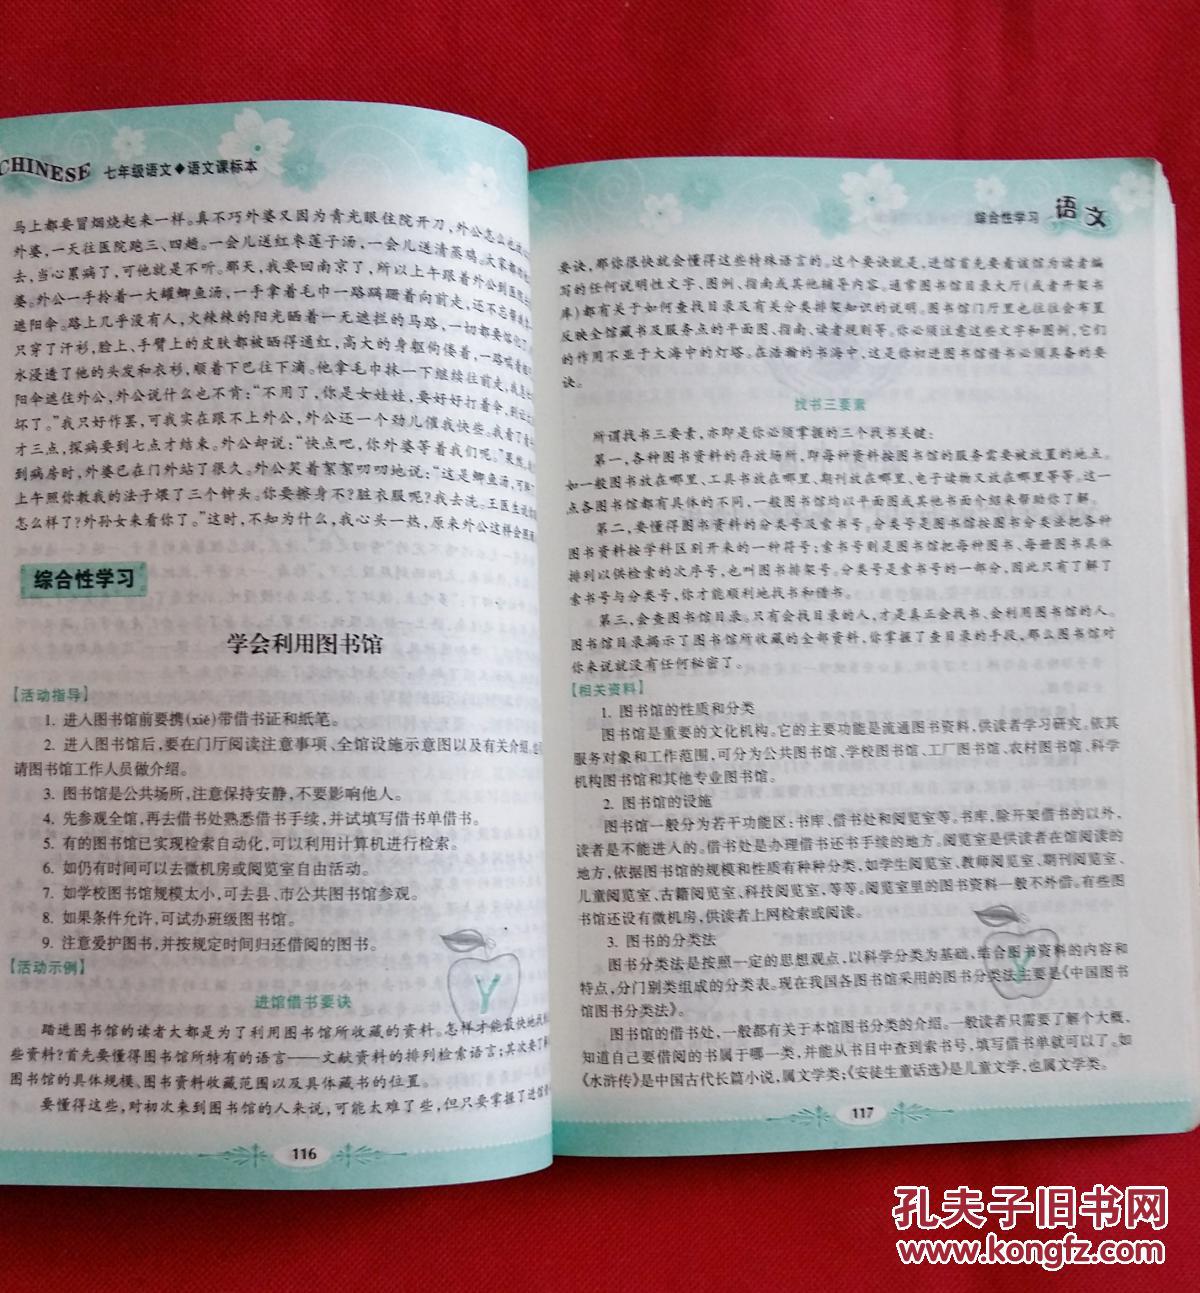 CHINESE 七年级语文◆语文课标本
马上都要冒烟烧起来一样。真不巧外婆又因为青光眼住院开刀，外公怎么也
外婆，一天往医院跑三、四趟。一会儿送红枣莲子汤，一会儿送清蒸鸡。大家都
去，当心累病了，可他就是不听。那天，我要回南京了，所以上午跟着外公到医院
婆。外公一手拎着一大罐鲫鱼汤，一手拿着毛巾一路蹒跚着向前走，还不忘
遮阳伞。路上几乎没有人，火辣辣的阳光晒着一无遮拦的马路，一切都要馆化了
只穿了汗衫，脸上、手臂上的皮肤都被晒得通红，高大的身躯佝偻着，一路喘着
水浸透了他的头发和衣衫，顺着下巴往下滴。他拿毛巾抹一下继续往前走，我
阳伞遮住外公，外公说什么也不肯：“不用了，你是女娃娃，要好好打着伞，别
坏了。”我只好作罢，可我实在跟不上外公，外公还一个劲儿催我快些。我看了
才三点，探病要到七点才结束。外公却说：“快点吧，你外婆等着我们呢。”果然，
到病房时，外婆已在门外站了很久。外公笑着絮絮叨叨地说：“这是鲫鱼汤，可
上午照你教我的法子煨了三个钟头。你要擦身不？脏衣服呢？我去洗。王医生说
怎么样了？外孙女来看你了。”这时，不知为什么，我心头一热，原来外公这样会照
综合性学习
学会利用图书馆
【活动指导】
1. 进入图书馆前要携(xié)带借书证和纸笔。
2. 进入图书馆后，要在门厅阅读注意事项、全馆设施示意图以及有关介绍，也
请图书馆工作人员做介绍。
3. 图书馆是公共场所，注意保持安静，不要影响他人。
4. 先参观全馆，再去借书处熟悉借书手续，并试填写借书单借书。
5. 有的图书馆已实现检索自动化，可以利用计算机进行检索。
6. 如仍有时间可以去微机房或阅览室自由活动。
7. 如学校图书馆规模太小，可去县、市公共图书馆参观。
8. 如果条件允许，可试办班级图书馆。
9. 注意爱护图书，并按规定时间归还借阅的图书。
【活动示例】
进馆借书要诀
踏进图书馆的读者大都是为了利用图书馆所收藏的资料。怎样才能最快地找
些资料？首先要懂得图书馆所特有的语言——文献资料的排列检索语言；其次要了解
图书馆的具体规模、图书资料收藏范围以及具体藏书的位置。
要懂得这些，对初次来到图书馆的人来说，可能太难了些，但只要掌握了进馆
116
综合性学习 语文
要诀，那你很快就会懂得这些特殊语言的。这个要诀就是，进馆首先要看该馆为读者编
写的任何说明性文字、图例、指南或其他辅导内容。通常图书馆目录大厅(或者开架书
库)都有关于如何查找目录及有关分类排架知识的说明。图书馆门厅里也往往会布置
反映全馆藏书及服务点的平面图、指南、读者规则等。你必须注意这些文字和图例，它们
的作用不亚于大海中的灯塔。在浩瀚的书海中，这是你初进图书馆借书必须具备的要
诀。
找书三要素
所谓找书三要素，亦即是你必须掌握的三个找书关键：
第一，各种图书资料的存放场所，即每种资料按图书馆的服务需要被放置的地点。
如一般图书放在哪里、工具书放在哪里、期刊放在哪里、电子读物又放在哪里等等。这一
点各图书馆都有具体的不同，一般图书馆均以平面图或其他书面介绍来帮助你了解。
第二，要懂得图书资料的分类号及索书号。分类号是图书馆按图书分类法把各种
图书资料按学科区别开来的一种符号；索书号则是图书馆把每种图书、每册图书具体
排列以供检索的次序号，也叫图书排架号。分类号是索书号的一部分，因此只有了解了
索书号与分类号，你才能顺利地找书和借书。
第三，会查图书馆目录。只有会找目录的人，才是真正会找书、会利用图书馆的人。
图书馆目录揭示了图书馆所收藏的全部资料，你掌握了查目录的手段，那么图书馆对
你来说就没有任何秘密了。
【相关资料】
1. 图书馆的性质和分类
图书馆是重要的文化机构。它的主要功能是流通图书资料，供读者学习研究。依其
服务对象和工作范围，可分为公共图书馆、学校图书馆、工厂图书馆、农村图书馆、科学
机构图书馆和其他专业图书馆。
2. 图书馆的设施
图书馆一般分为若干功能区：书库、借书处和阅览室等。书库，除开架借书的以外，
读者是不能进入的。借书处是办理借书还书手续的地方。阅览室是供读者在馆阅读的
地方，依据图书馆的规模和性质有种种分类，如学生阅览室、教师阅览室、期刊阅览室、
儿童阅览室、古籍阅览室、科技阅览室，等等。阅览室里的图书资料一般不外借。有些图
书馆还设有微机房，供读者上网检索或阅读。
3. 图书的分类法
图书分类法是按照一定的思想观点，以科学分类为基础，结合图书资料的内容和
特点，分门别类组成的分类表。现在我国各图书馆采用的图书分类法主要是《中国图书
馆图书分类法》。
图书馆的借书处，一般都有关于本馆图书分类的介绍。一般读者只需要了解个大概，
知道自己要借阅的书属于哪一类，并能从书目中查到索书号，填写借书单就可以了。如
《水浒传》是中国古代长篇小说，属文学类；《安徒生童话选》是儿童文学，也属文学类。
117
孔夫子旧书网
www.kongfz.com